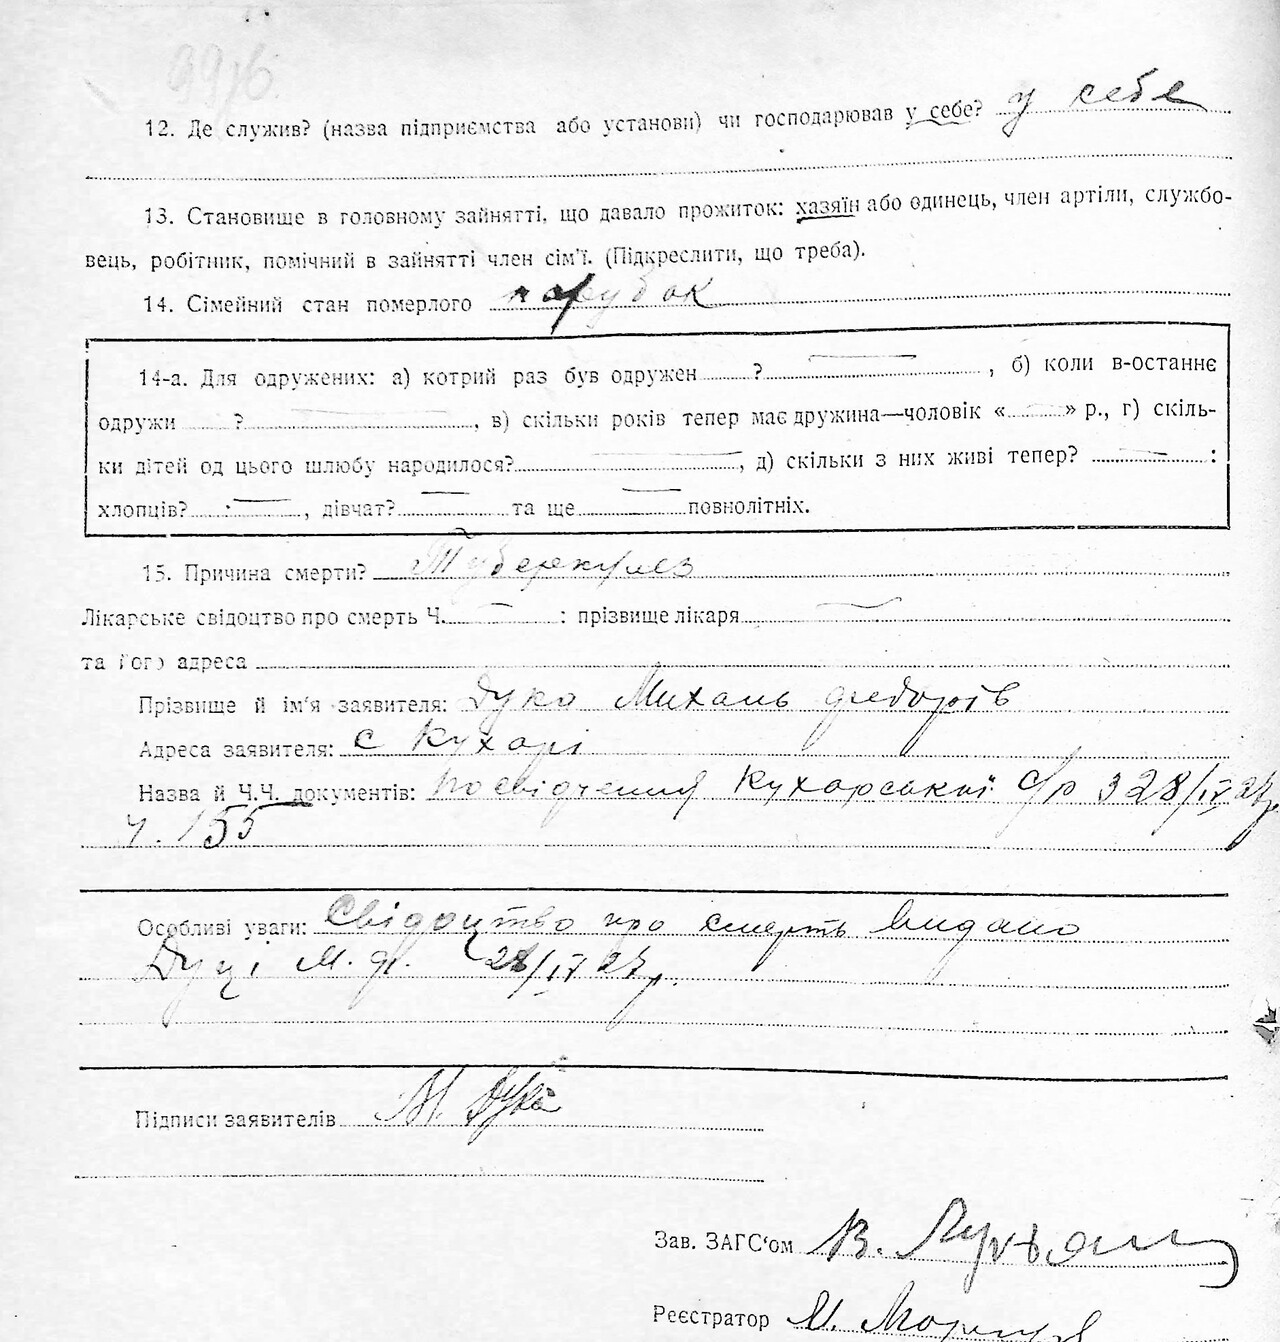 12. Де служив? (назва підприємства або установи) чи господарював у себе? у себе
13. Становище в головному зайнятті, що давало прожиток: хазяїн або одинець, член артіли, службо-
вець, робітник, помічний в зайнятті член сім'ї. (Підкреслити, що треба).
14. Сімейний стан померлого парубок
14-а. Для одружених: а) котрий раз був одружен ? , б) коли в-останнє
одружи ? , в) скільки років тепер має дружина—чоловік « » р., г) скіль-
ки дітей од цього шлюбу народилося? , д) скільки з них живі тепер? :
хлопців? , дівчат? та ще повнолітніх.
15. Причина смерти? Туберкульоз
Лікарське свідоцтво про смерть Ч. : прізвище лікаря
та його адреса
Прізвище й ім'я заявителя: Дука Михаль Федорів
Адреса заявителя: с Кухарі
Назва й Ч.Ч. документів: посвідчення Кухарської с/р з 28/IV 27р.
ч. 155
Особливі уваги: Свідоцтво про смерть видано
Дуці М. Ф. 28/IV 27р.
Підписи заявителів М. Дука
Зав. ЗАГС'ом В.
Реєстратор М.